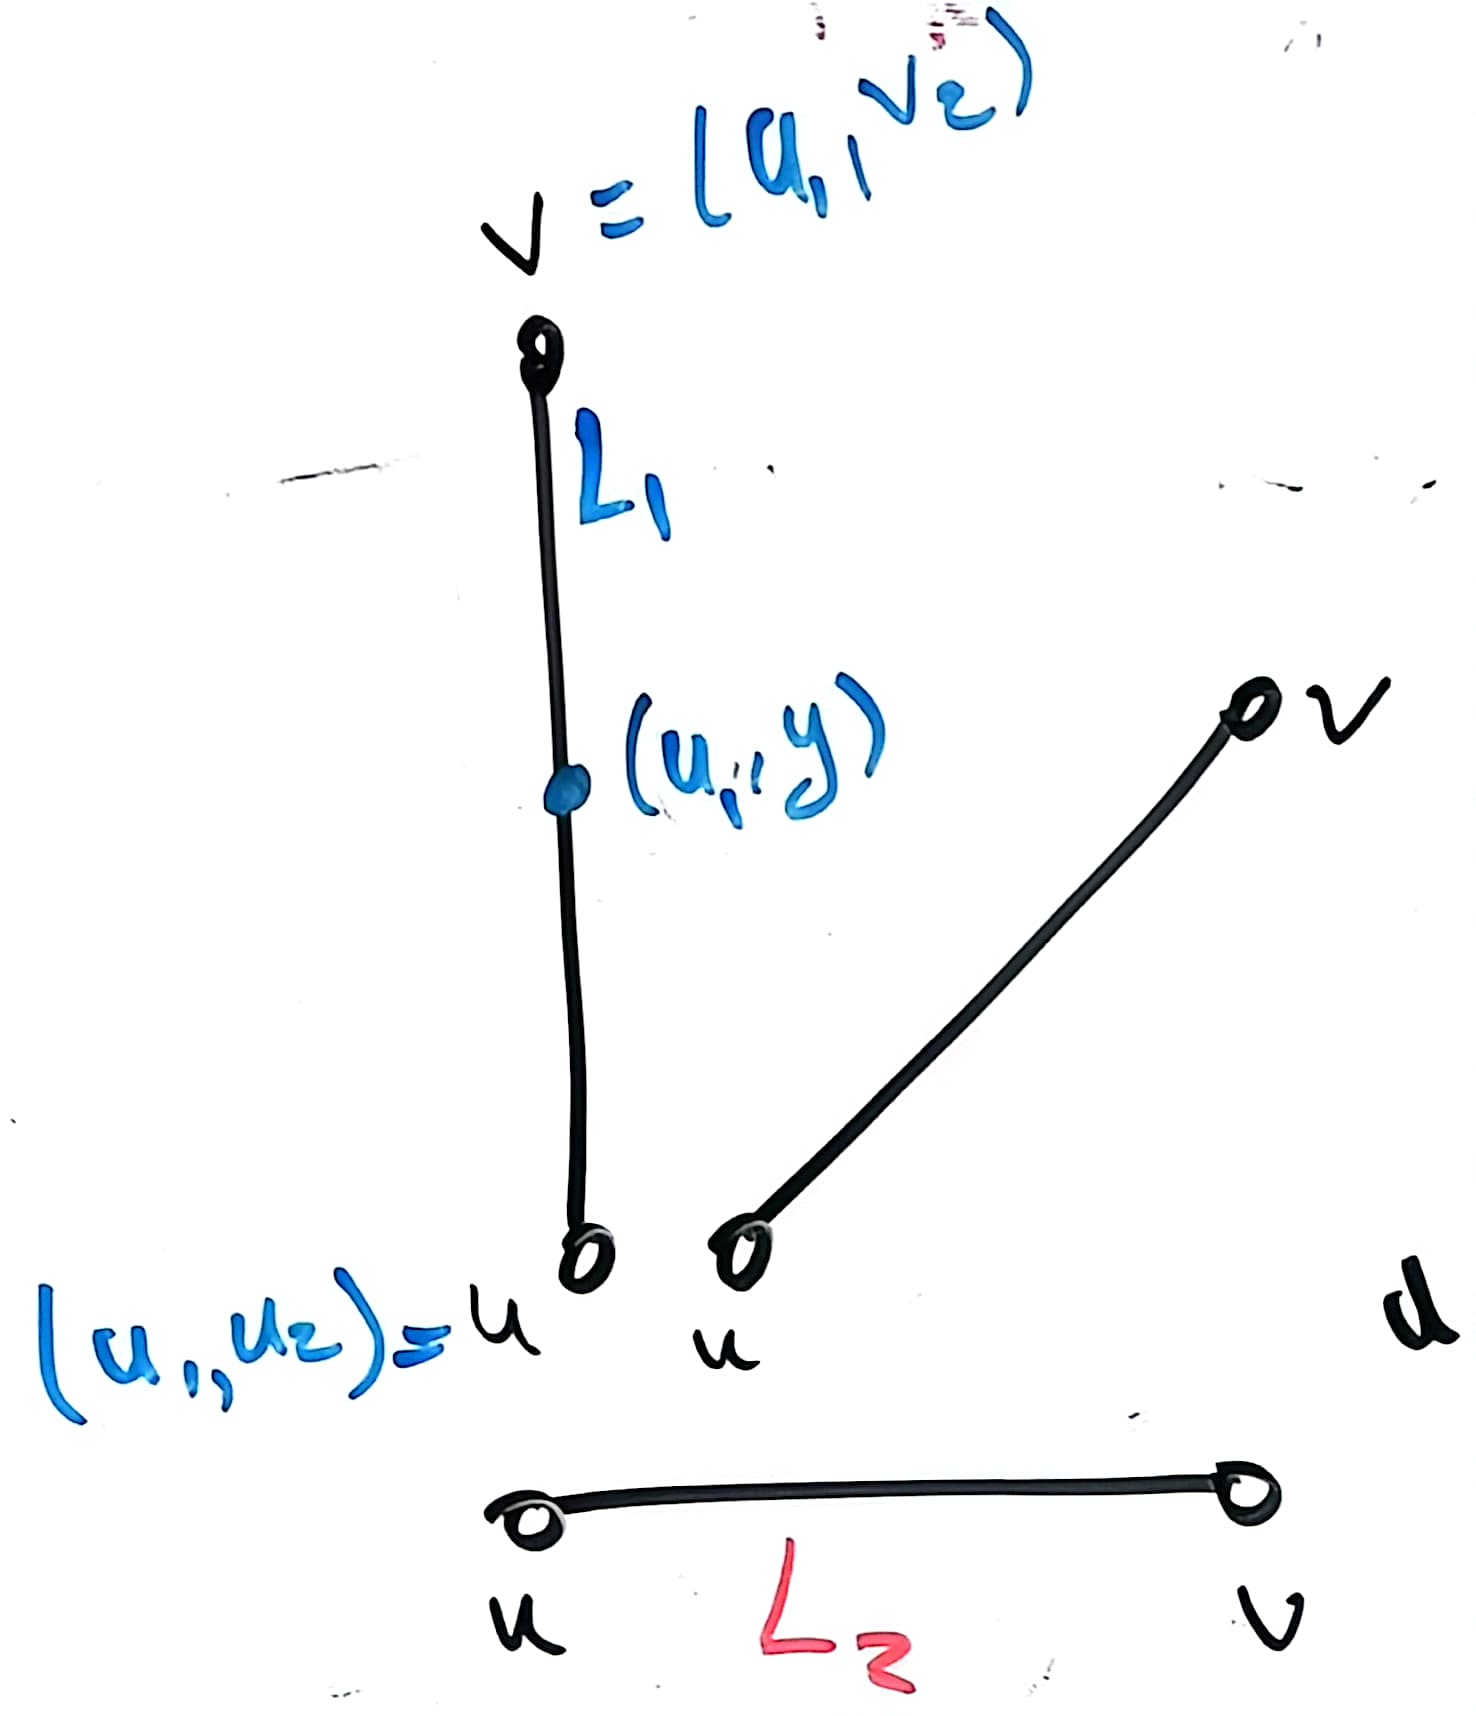 v = (u₁, v₂)
L₁
(u₁, y)
v
(u₁, u₂) = u
u
d
u
L₂
v